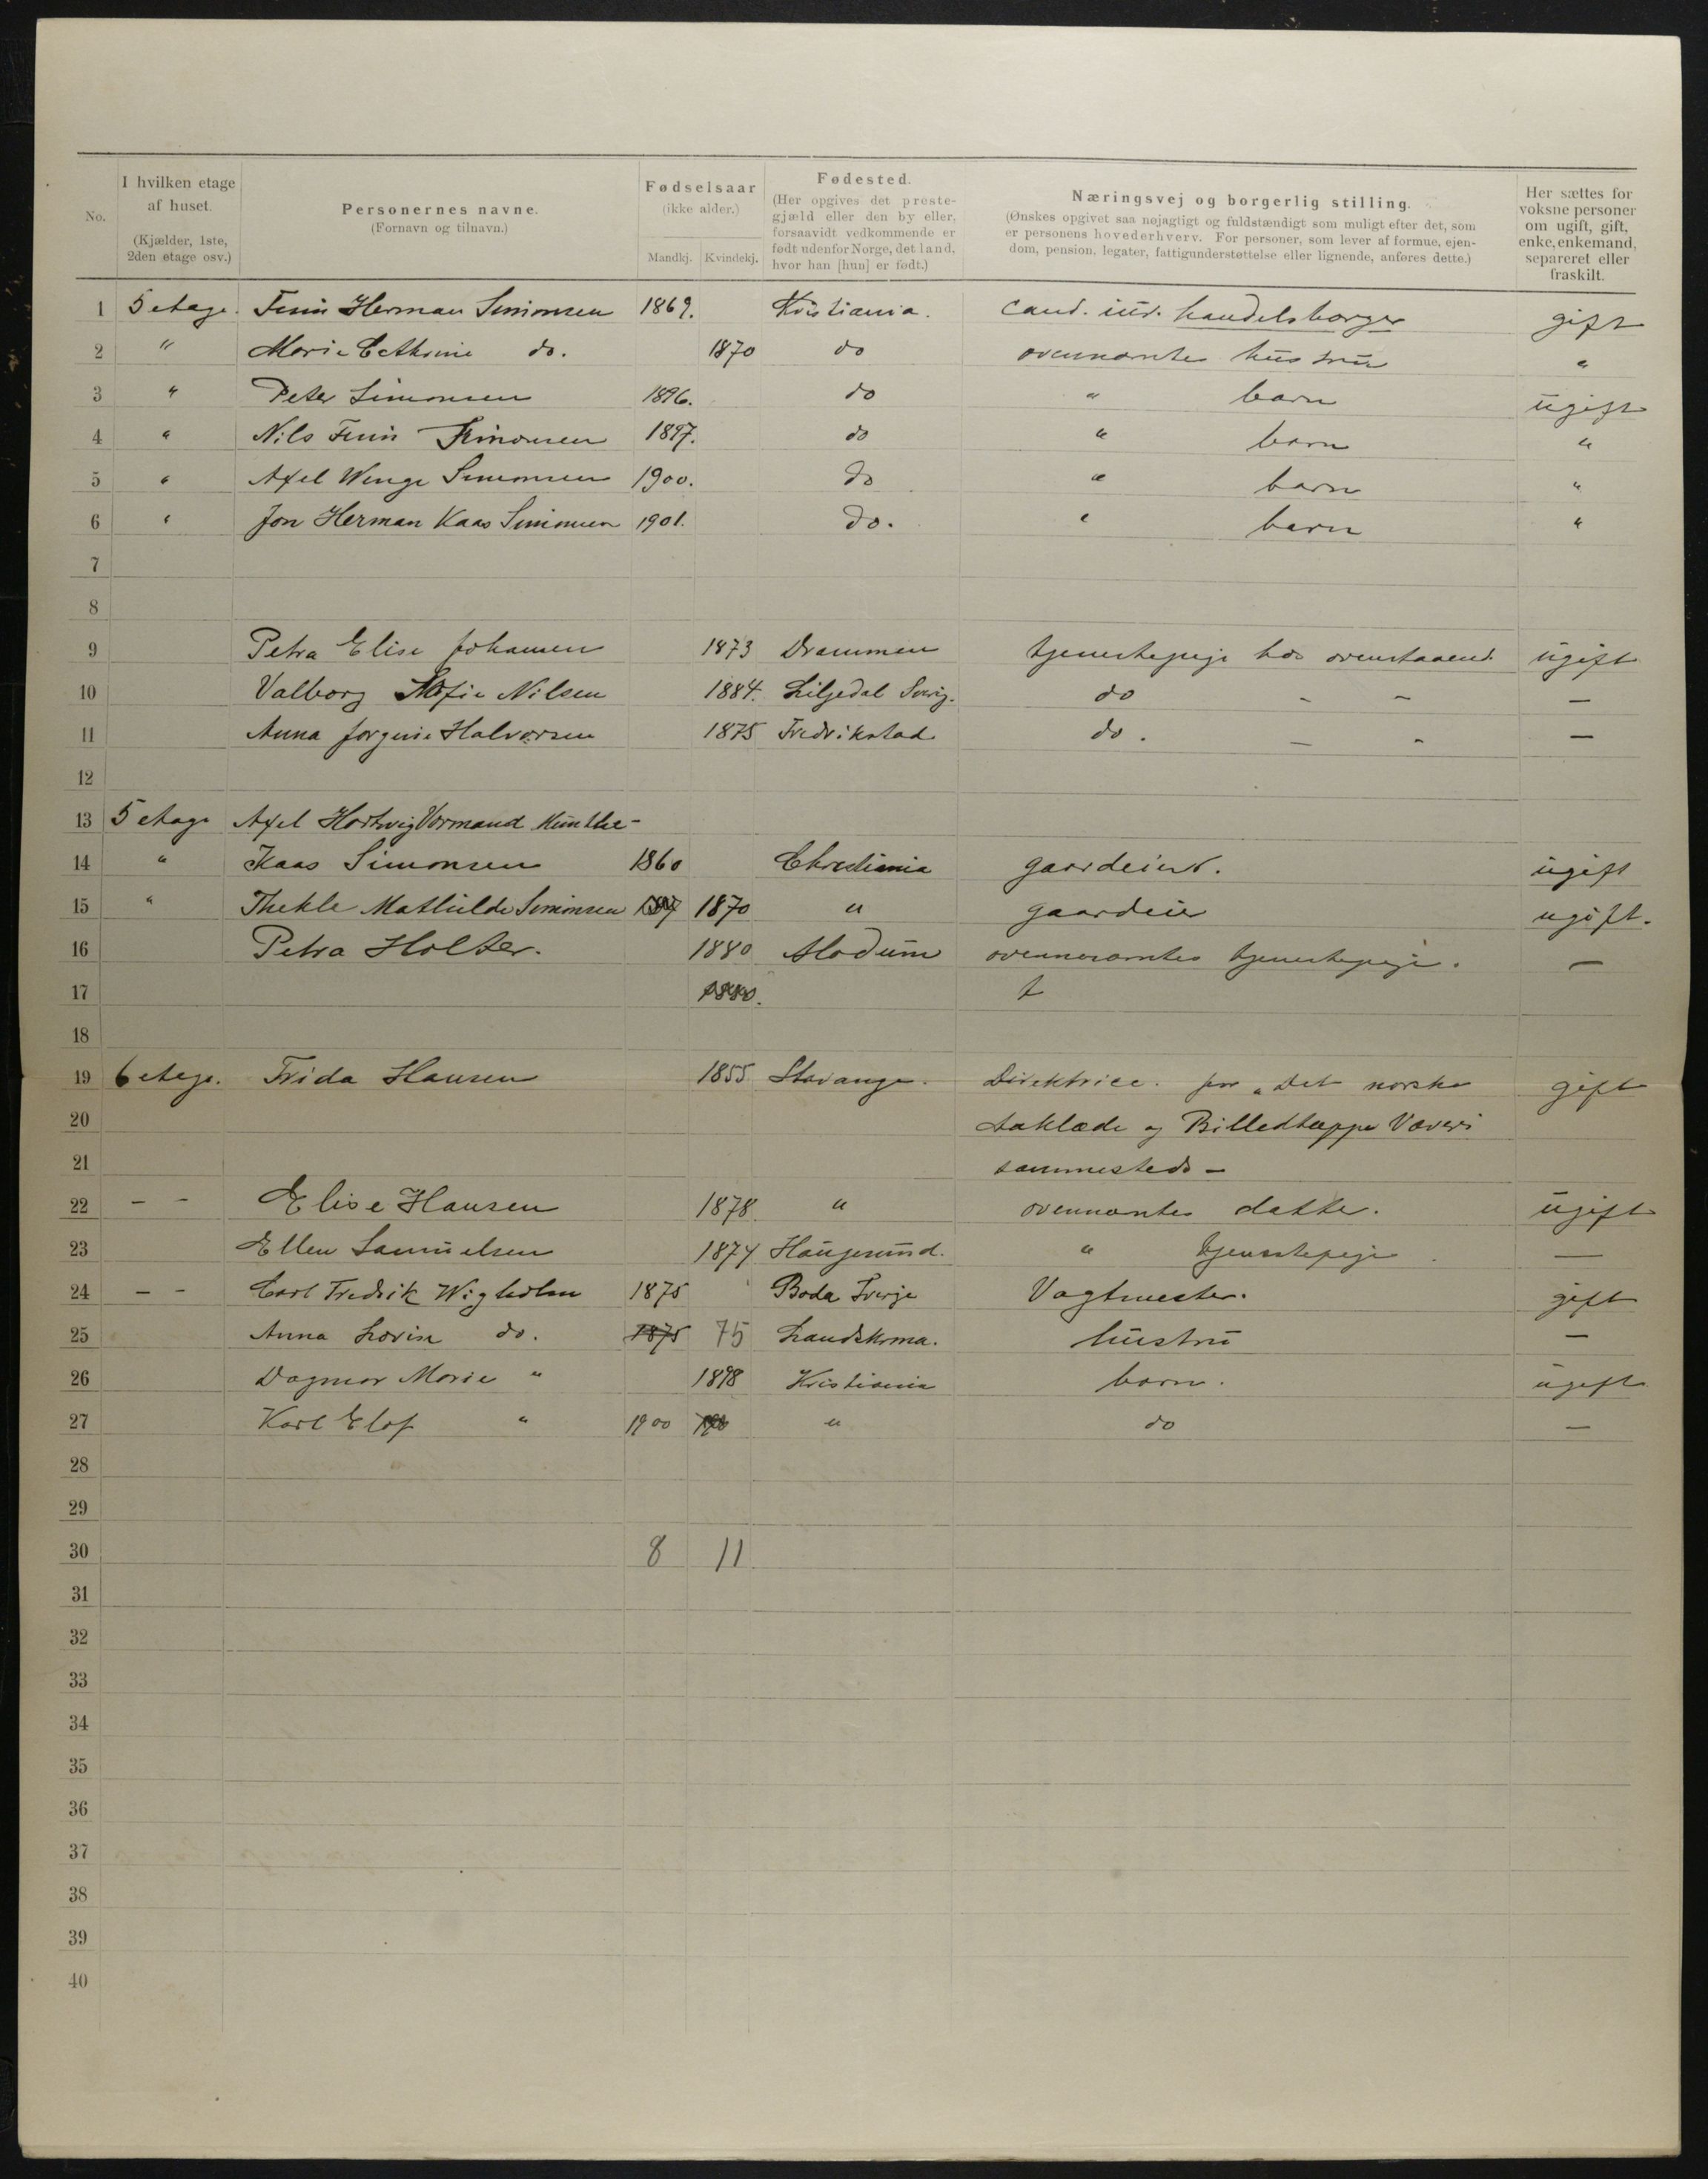 No.
I hvilken etage af huset. (Kjælder, 1ste, 2den etage osv.)
Personernes navne. (Fornavn og tilnavn.)
Fødselsaar (ikke alder.)
Mandkj. Kvindekj.
Fødested. (Her opgives det preste-
gjæld eller den by eller,
forsaavidt vedkommende er
født udenfor Norge, det land,
hvor han [hun] er født.)
Næringsvej og borgerlig stilling.
(Ønskes opgivet saa nøjagtigt og fuldstændigt som muligt efter det, som
er personens hovederhverv. For personer, som lever af formue, ejen-
dom, pension, legater, fattigunderstøttelse eller lignende, anføres dette.)
Her sættes for
voksne personer
om ugift, gift,
enke, enkemand,
separeret eller
fraskilt.
1 5 etage. Finn Herman Simonsen 1869. Kristiania. Cand. jur. handelsborger gift
2 " Marie Cathrine do. 1870 do ovennævntes hustru "
3 " Peter Simonsen 1896. do " barn ugift
4 " Nils Finn Simonsen 1897. do " barn "
5 " Axel Winge Simonsen 1900. do " barn "
6 " Jon Herman Kaas Simonsen 1901. do. " barn "
7
8
9 Petra Elise Johansen 1873 Drammen tjenestepige hos ovenstaaend. ugift
10 Valborg Sofie Nilsen 1884. Liljedal Sverig. do - - —
11 Anna Jørgine Halvorsen 1875 Fredrikstad do. - - —
12
13 5 etage Axel Hartvig Vormand Munthe-
14 " Kaas Simonsen 1860 Christiania gaardeier. ugift
15 " Thekle Mathilde Simonsen 1870 " gaardeier ugift.
16 Petra Holter. 1880 Modum ovennævntes tjenestepige. —
17 1880. t
18
19 6 etage. Frida Hansen 1855 Stavanger. Direktrice. for "Det norske gift
20 Aaklæde og Billedtæppe Væveri
21 sammesteds -
22 - - Elise Hansen 1878 " ovennævntes datter. ugift
23 Ellen Samuelsen 1874 Haugesund. " tjenestepige. —
24 - - Carl Fredrik Wigholm 1875 Boda Sverje Vagtmester. gift
25 Anna Lovise do. 1875 75 Landskrona. hustru —
26 Dagmar Marie " 1898 Kristiania barn. ugift
27 Karl Elof " 1900 " do —
28
29
30 8 11
31
32
33
34
35
36
37
38
39
40